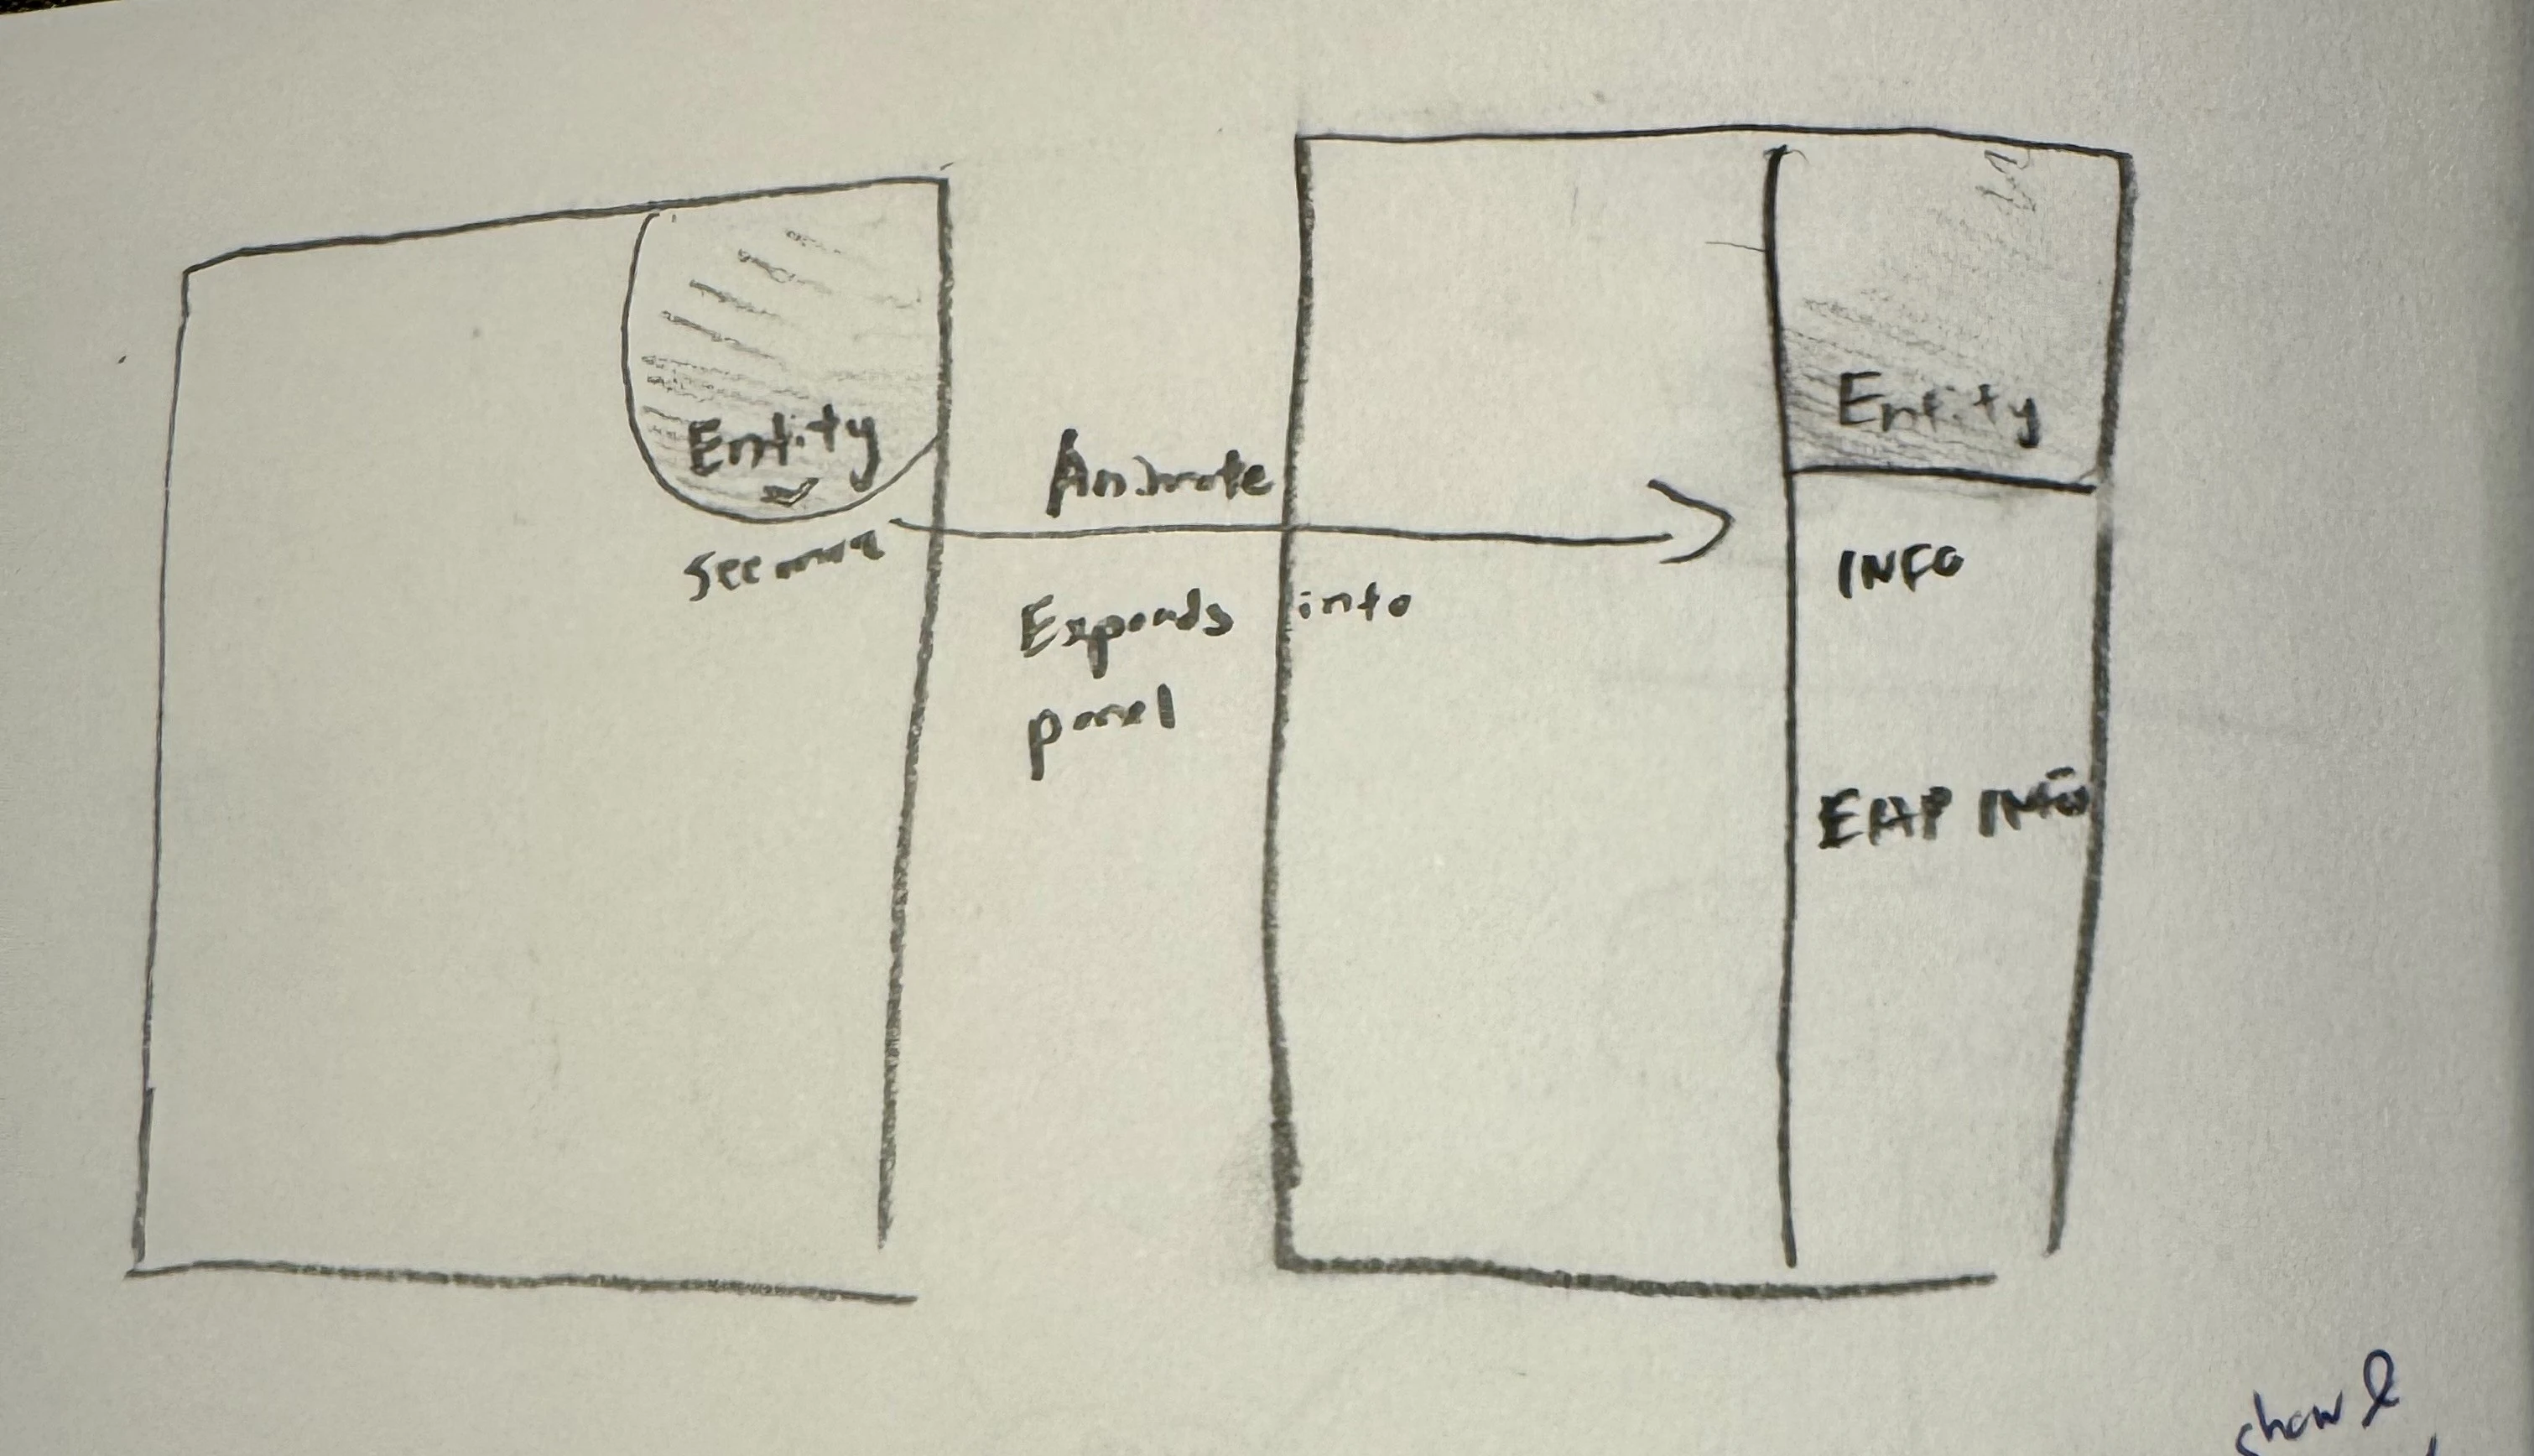 Entity
see more
Animate
Expands into
panel
Entity
INFO
EAP INFO
show